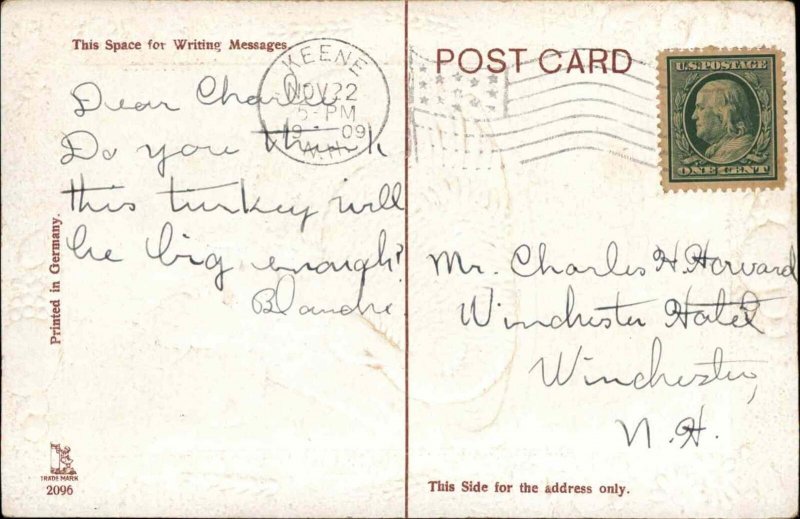 This Space for Writing Messages.
Dear Charlie
Do you think
this turkey will
be big enough?
Blanche.
Printed in Germany.
TRADE MARK
2096
KEENE
NOV 22
5-PM
09
N.H.
POST CARD
U.S. POSTAGE
ONE CENT
Mr. Charles H. Howard
Winchester Hotel
Winchester,
N.H.
This Side for the address only.